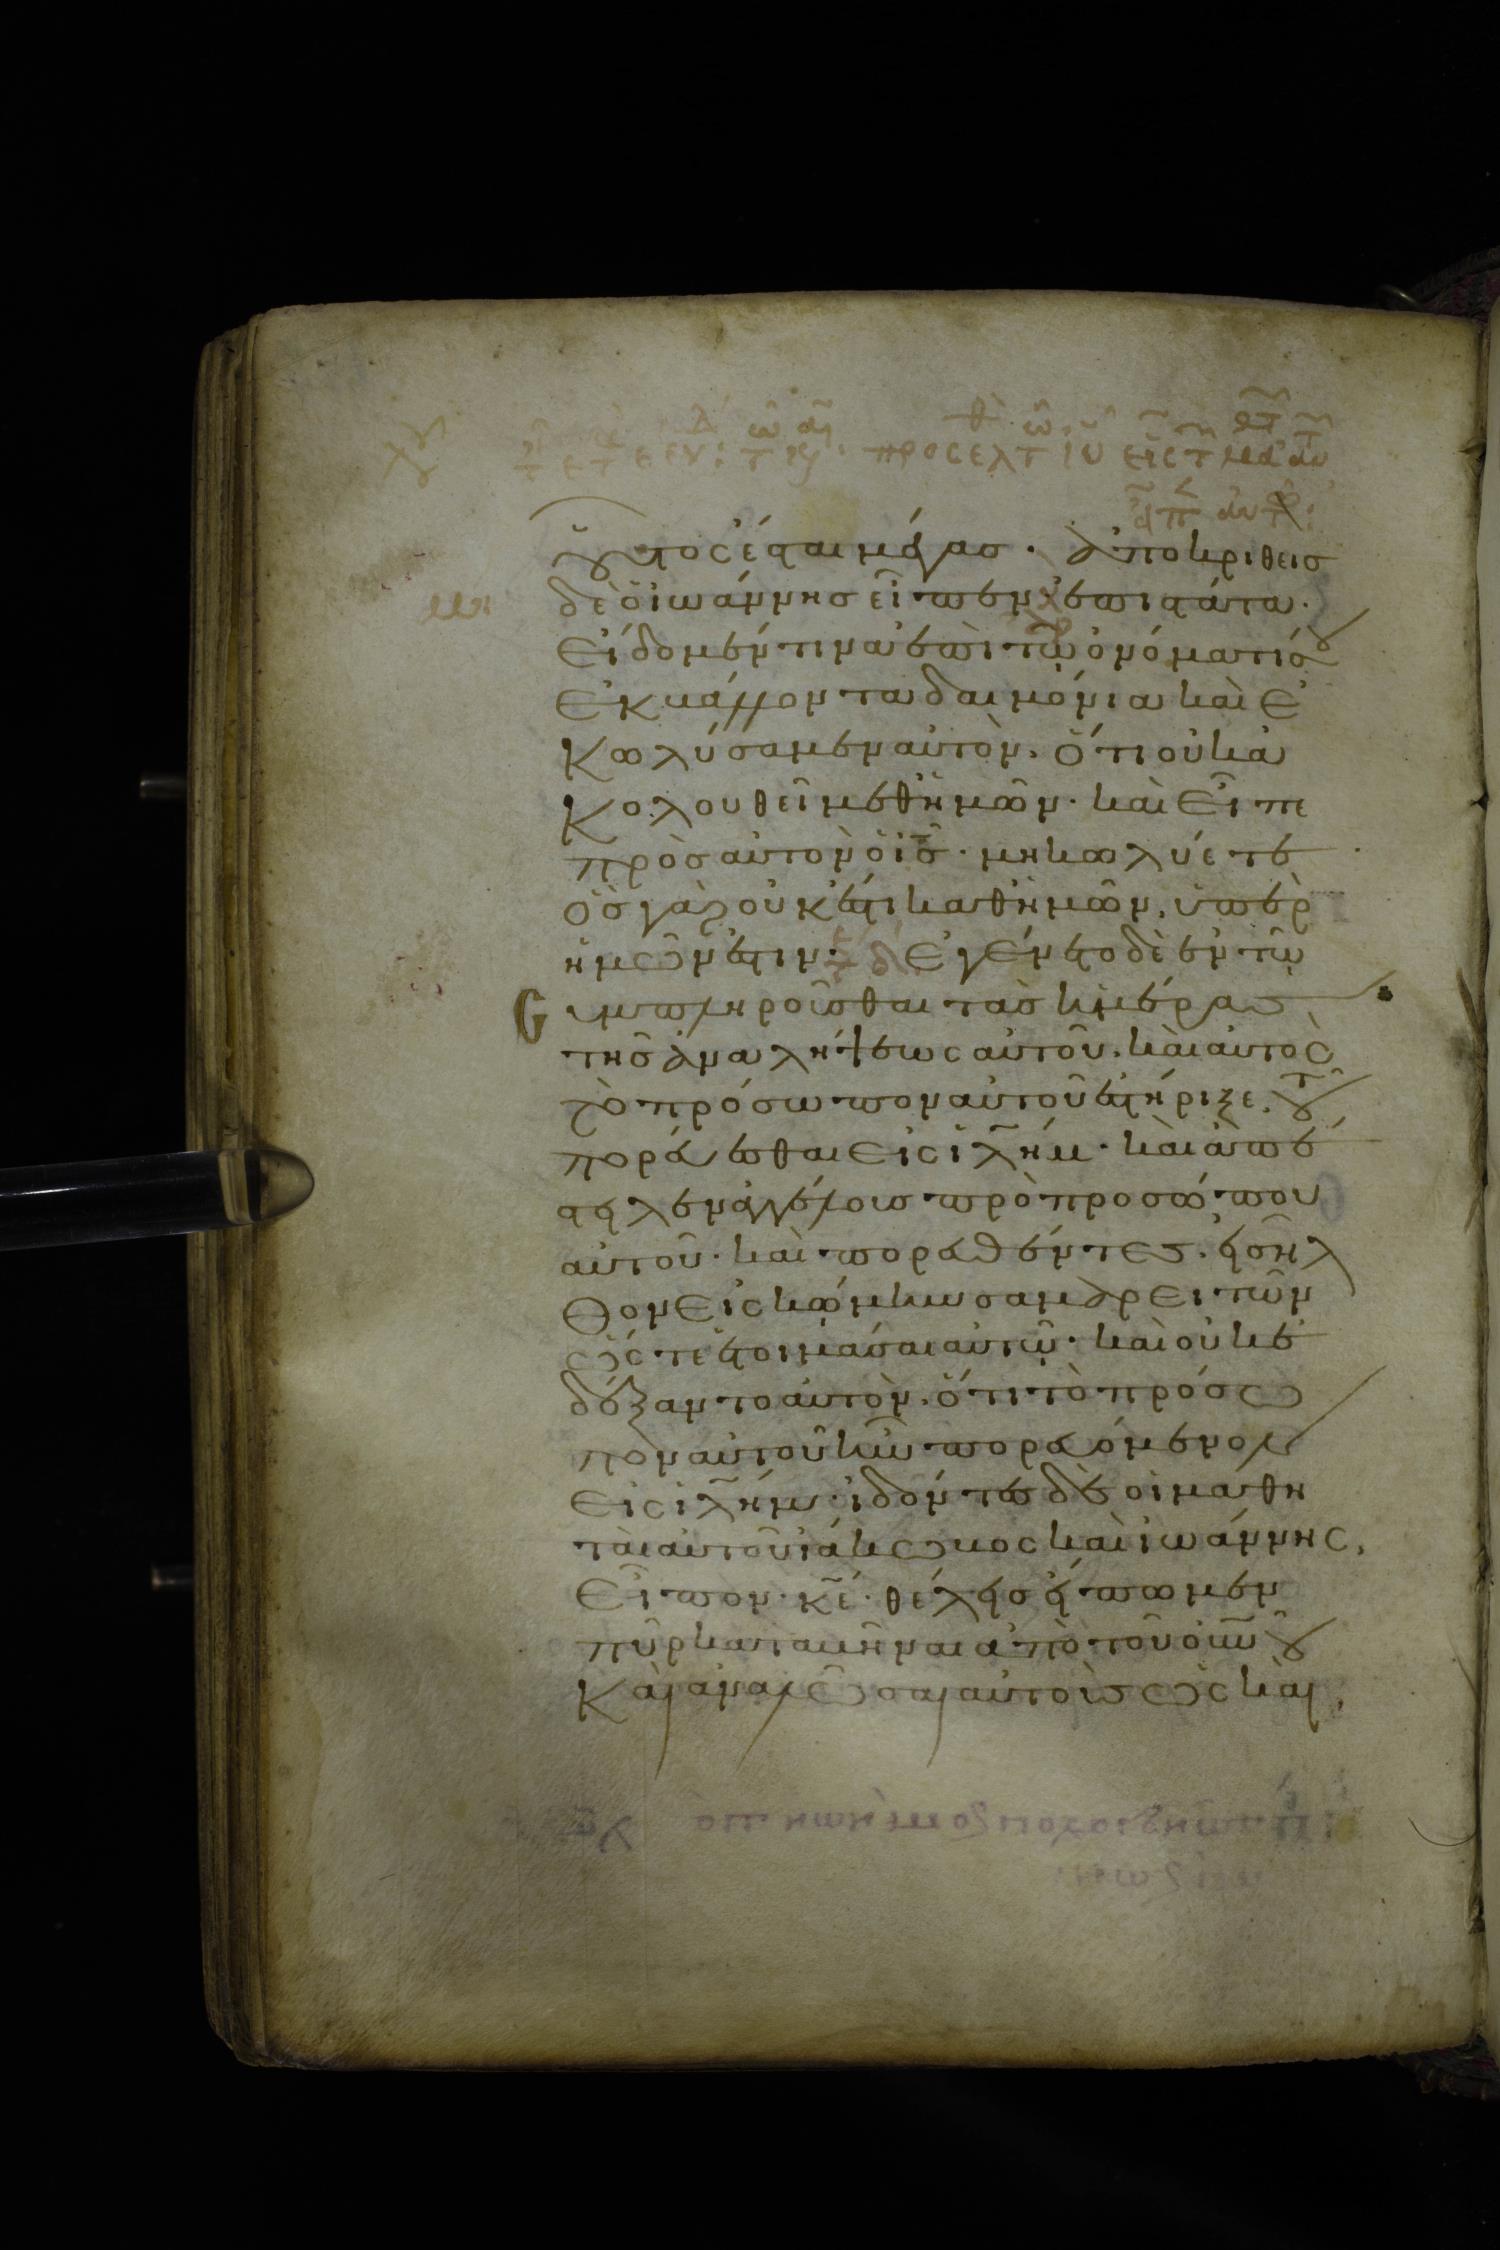 οὗτος ἔσται μέγασ · ἀποκριθεισ
δὲ ὁ ἰωάννησ εἶπεν ἐπιστάτα ·
εἴδομέν τινα ἐπὶ τῶ ὀνόματί σου
ἐκβάλλον τα δαιμόνια καὶ ἐ
κωλύσαμεν αὐτὸν · ὅτι οὐκ ἀ
κολουθεῖ μεθ ἡμῶν · καὶ εἶπε
πρὸσ αὐτον ὁ ις · μη κωλύετε
ὅσ γὰρ οὐκ ἔστι καθ ἡμῶν · ὑπὲρ
ἡμῶν ἐστιν · ἐγένετο δὲ ἐν τῶ
συμπληροῦσθαι τὰσ ἡμέρασ
τῆσ ἀναλήψεως αὐτοῦ · καὶ αὐτὸς
τὸ πρόσωπον αὐτοῦ ἐστήριξε · τοῦ
πορεύεσθαι εἰς ιλημ · καὶ ἀπέ
στειλεν ἀγγέλουσ πρὸ προσώπου
αὐτοῦ · καὶ πορευθέντεσ · εἰσῆλ
θον εἰς κώμην σαμαρειτῶν
ὥς τε ἑτοιμάσαι αὐτῶ · καὶ οὐκ ἐ
δέξαντο αὐτὸν · ὅτι τὸ πρόσω
πον αὐτοῦ ἦν πορευόμενον
εἰς ιλημ · ἰδόντεσ δὲ οἱ μαθη
ταὶ αὐτοῦ ἰάκωβος καὶ ἰωάννης ·
εἶπον · κε · θέλεισ εἴπωμεν
πῦρ καταβῆναι ἀπὸ τοῦ ουνου
καὶ ἀναλῶσαι αὐτοὺσ ὡς καὶ